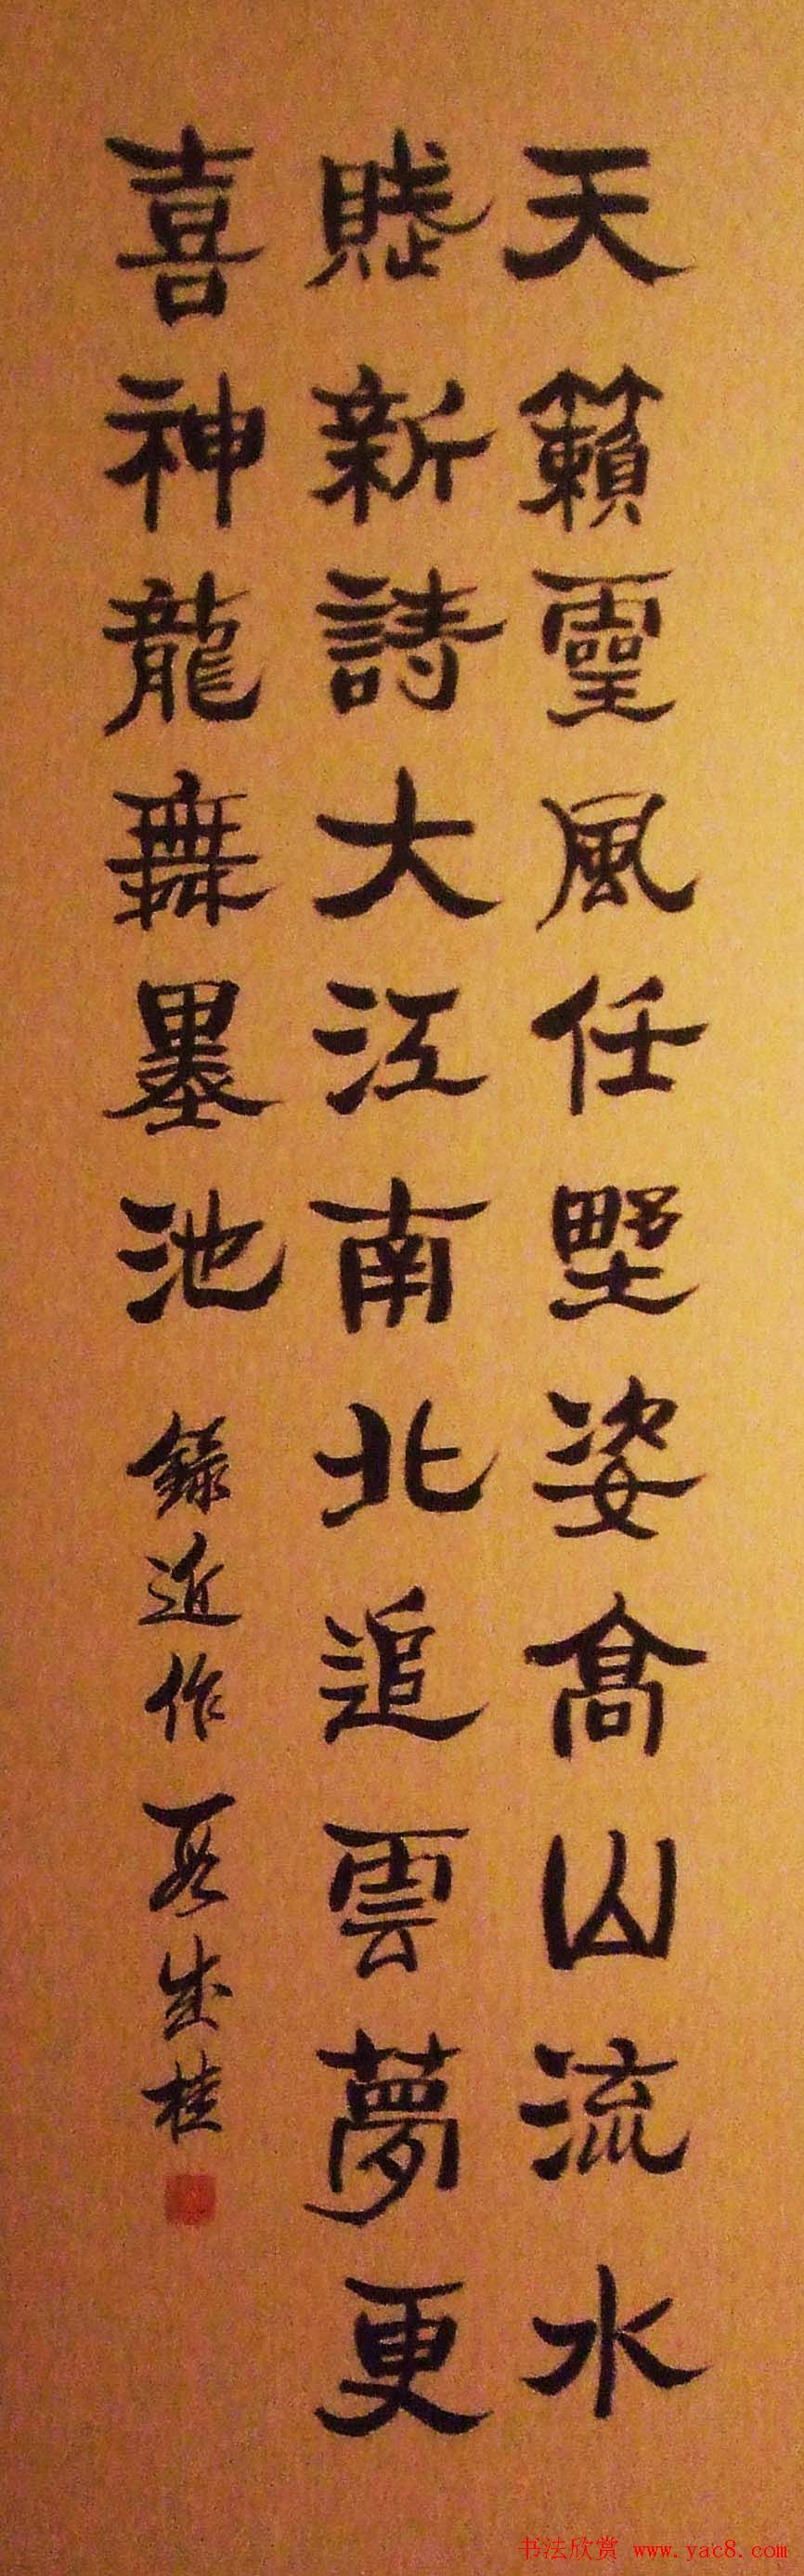 天籟靈風任墅姿高山流水
賦新詩大江南北追雲夢更
喜神龍舞墨池
錄近作 段成桂
书法欣赏 www.yac8.com